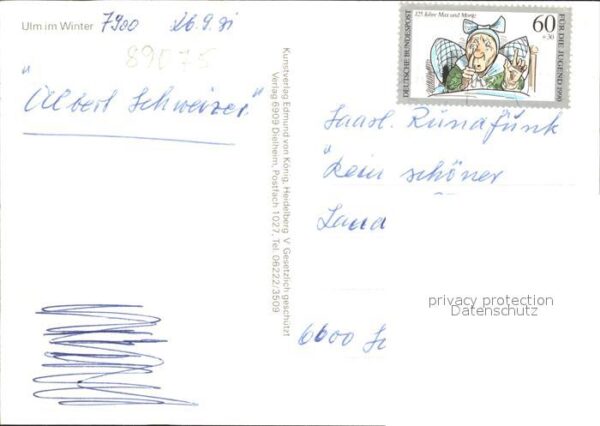 Ulm im Winter 7900 26.9.91
89075
"Albert Schweizer"
Kunstverlag Edmund von König, Heidelberg V Gesetzlich geschützt
Verlag 6909 Dielheim, Postfach 1027, Tel. 06222/3509
125 Jahre Max und Moritz
60
+30
DEUTSCHE BUNDESPOST
FÜR DIE JUGEND 1990
Saarl. Rundfunk
"Kein schöner
Land
6600
privacy protection
Datenschutz